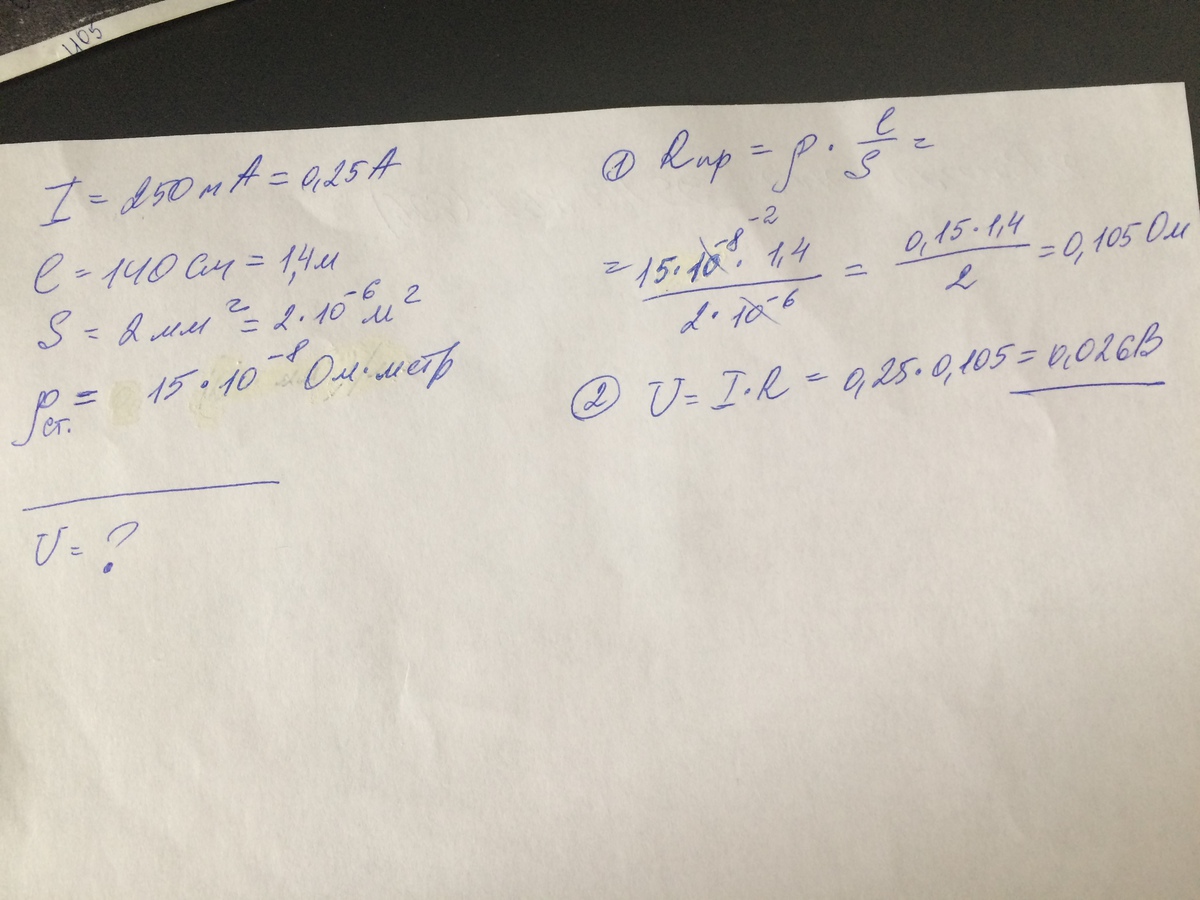 1105
I = 250 мА = 0,25 А
l = 140 см = 1,4 м
S = 2 мм² = 2·10⁻⁶ м²
ρст. = 15·10⁻⁸ Ом·метр
U = ?
① Rпр = ρ · l/S =
= 15·10⁻⁸ ⁻²·1,4 / 2·10⁻⁶ = 0,15·1,4 / 2 = 0,105 Ом
② U = I·R = 0,25·0,105 = 0,026В